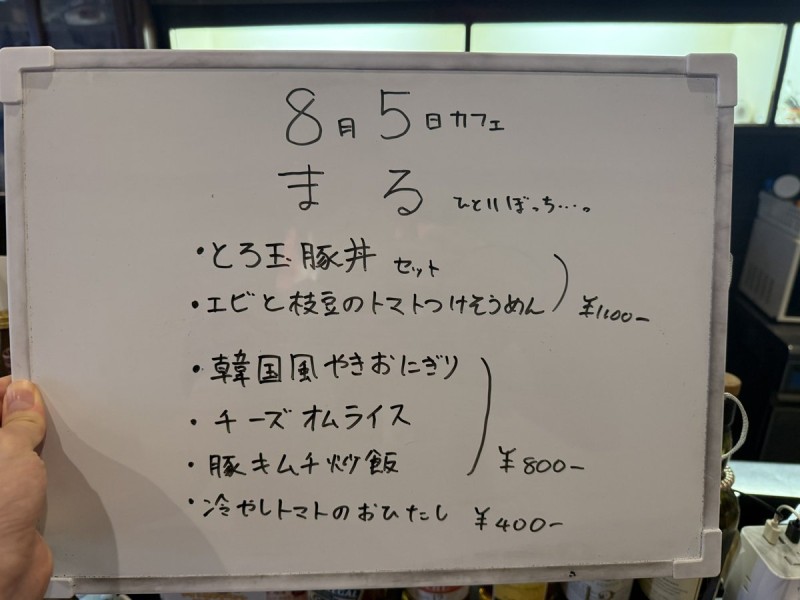 8月5日カフェ
まる ひとりぼっち…。
・とろ玉豚丼 セット
・エビと枝豆のトマトつけそうめん ¥1100-
・韓国風やきおにぎり
・チーズオムライス
・豚キムチ炒飯 ¥800-
・冷やしトマトのおひたし ¥400-